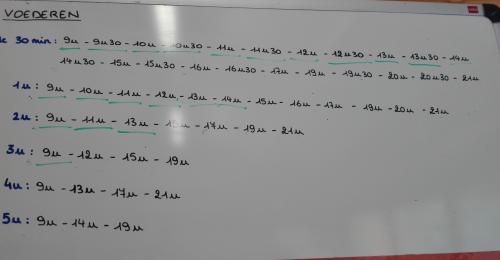 VOEDEREN
30 min: 9u - 9u30 - 10u - 10u30 - 11u - 11u30 - 12u - 12u30 - 13u - 13u30 - 14u
14u30 - 15u - 15u30 - 16u - 16u30 - 17u - 19u - 19u30 - 20u - 20u30 - 21u
1u: 9u - 10u - 11u - 12u - 13u - 14u - 15u - 16u - 17u - 19u - 20u - 21u
2u: 9u - 11u - 13u - 15u - 17u - 19u - 21u
3u: 9u - 12u - 15u - 19u
4u: 9u - 13u - 17u - 21u
5u: 9u - 14u - 19u